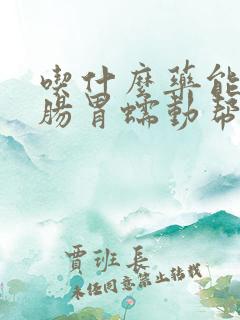 喫什麼藥能
腸胃蠕動幫
賈班長
未经同意禁止转载